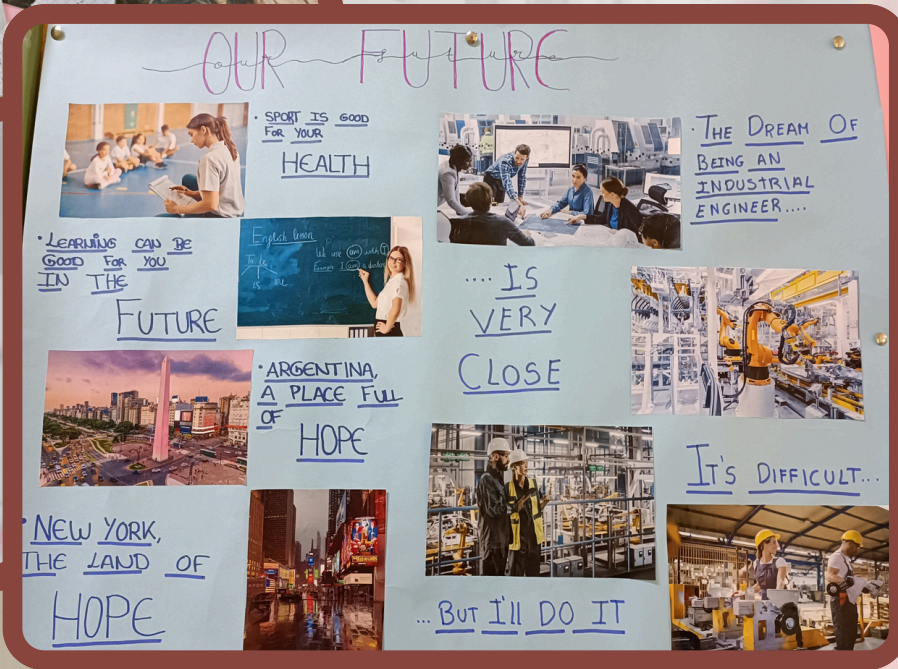 OUR FUTURE
future
· SPORT IS GOOD
FOR YOUR
HEALTH
· LEARNING CAN BE
GOOD FOR YOU
IN THE
FUTURE
English lesson
To be
is
We use (am) with I
Example: I (am) a doctor
· ARGENTINA,
A PLACE FULL
OF
HOPE
· NEW YORK,
THE LAND OF
HOPE
· THE DREAM OF
BEING AN
INDUSTRIAL
ENGINEER....
....IS
VERY
CLOSE
IT'S DIFFICULT...
...BUT I'll DO IT